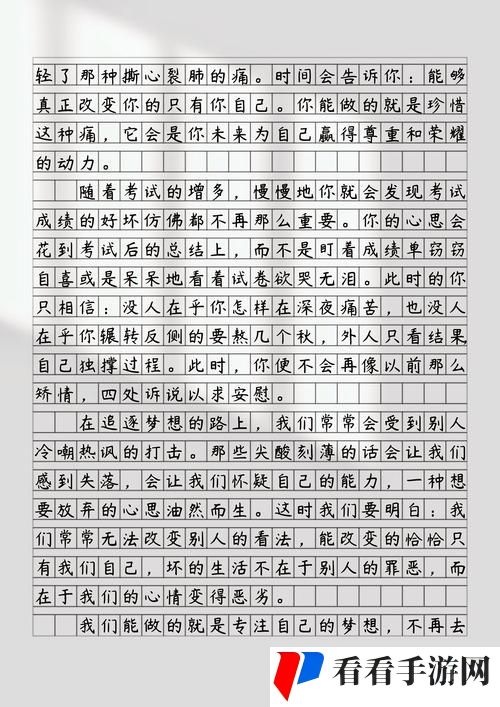 轻了那种撕心裂肺的痛。时间会告诉你：能够
真正改变你的只有你自己。你能做的就是珍惜
这种痛，它会是你未来为自己赢得尊重和荣耀
的动力。
随着考试的增多，慢慢地你就会发现考试
成绩的好坏仿佛都不再那么重要。你的心思会
花到考试后的总结上，而不是盯着成绩单窃窃
自喜或是呆呆地看着试卷欲哭无泪。此时的你
只相信：没人在乎你怎样在深夜痛苦，也没人
在乎你辗转反侧的要熬几个秋，外人只看结果，
自己独撑过程。此时，你便不会再像以前那么
矫情，四处诉说以求安慰。
在追逐梦想的路上，我们常常会受到别人
冷嘲热讽的打击。那些尖酸刻薄的话会让我们
感到失落，会让我们怀疑自己的能力，一种想
要放弃的心思油然而生。这时我们要明白：我
们常常无法改变别人的看法，能改变的恰恰只
有我们自己，坏的生活不在于别人的罪恶，而
在于我们的心情变得恶劣。
我们能做的就是专注自己的梦想，不再去
看看手游网